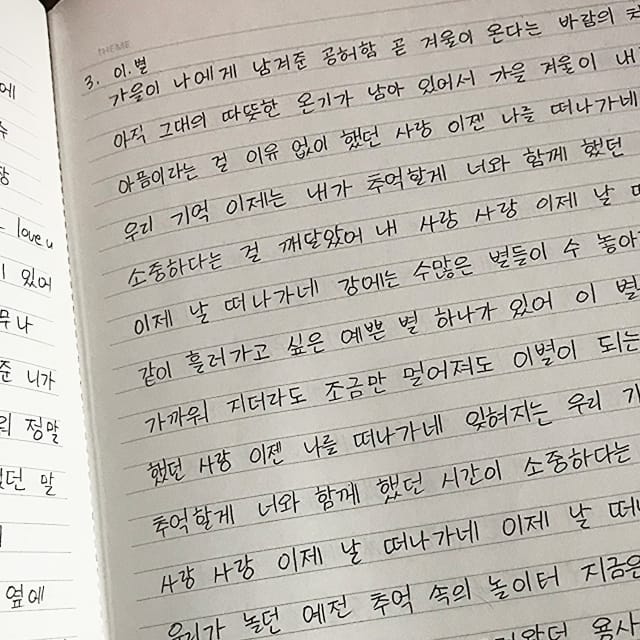 에
love u
있어
무나
준 니가
정말
던 말
옆에
THEME
3. 이.별
가을이 나에게 남겨준 공허함 곧 겨울이 온다는 바람의
아직 그대의 따뜻한 온기가 남아 있어서 가을 겨울이 내
아픔이라는 걸 이유 없이 했던 사랑 이젠 나를 떠나가네
우리 기억 이제는 내가 추억할게 너와 함께 했던
소중하다는 걸 깨달았어 내 사랑 사랑 이제 날
이제 날 떠나가네 강에는 수많은 별들이 수 놓아
같이 흘러가고 싶은 예쁜 별 하나가 있어 이 별
가까워 지더라도 조금만 멀어져도 이별이 되는
했던 사랑 이젠 나를 떠나가네 잊혀지는 우리 기
추억할게 너와 함께 했던 시간이 소중하다는
사랑 사랑 이제 날 떠나가네 이제 날
우리가 놀던 예전 추억 속의 놀이터 지금은
용사